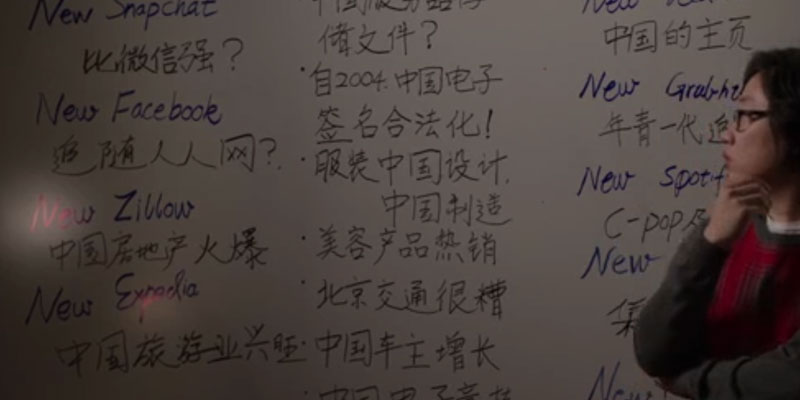 New Snapchat
比微信强？
New Facebook
追随人人网？
New Zillow
中国房地产火爆
New Expedia
中国旅游业兴旺
中国服务器存
储文件？
·自2004.中国电子
签名合法化！
·服装中国设计.
中国制造
·美容产品热销
·北京交通很糟
·中国车主增长
中国电子竞技
New
中国的主页
New Grubh
年青一代追
New Spotif
C-pop及
New
集
New